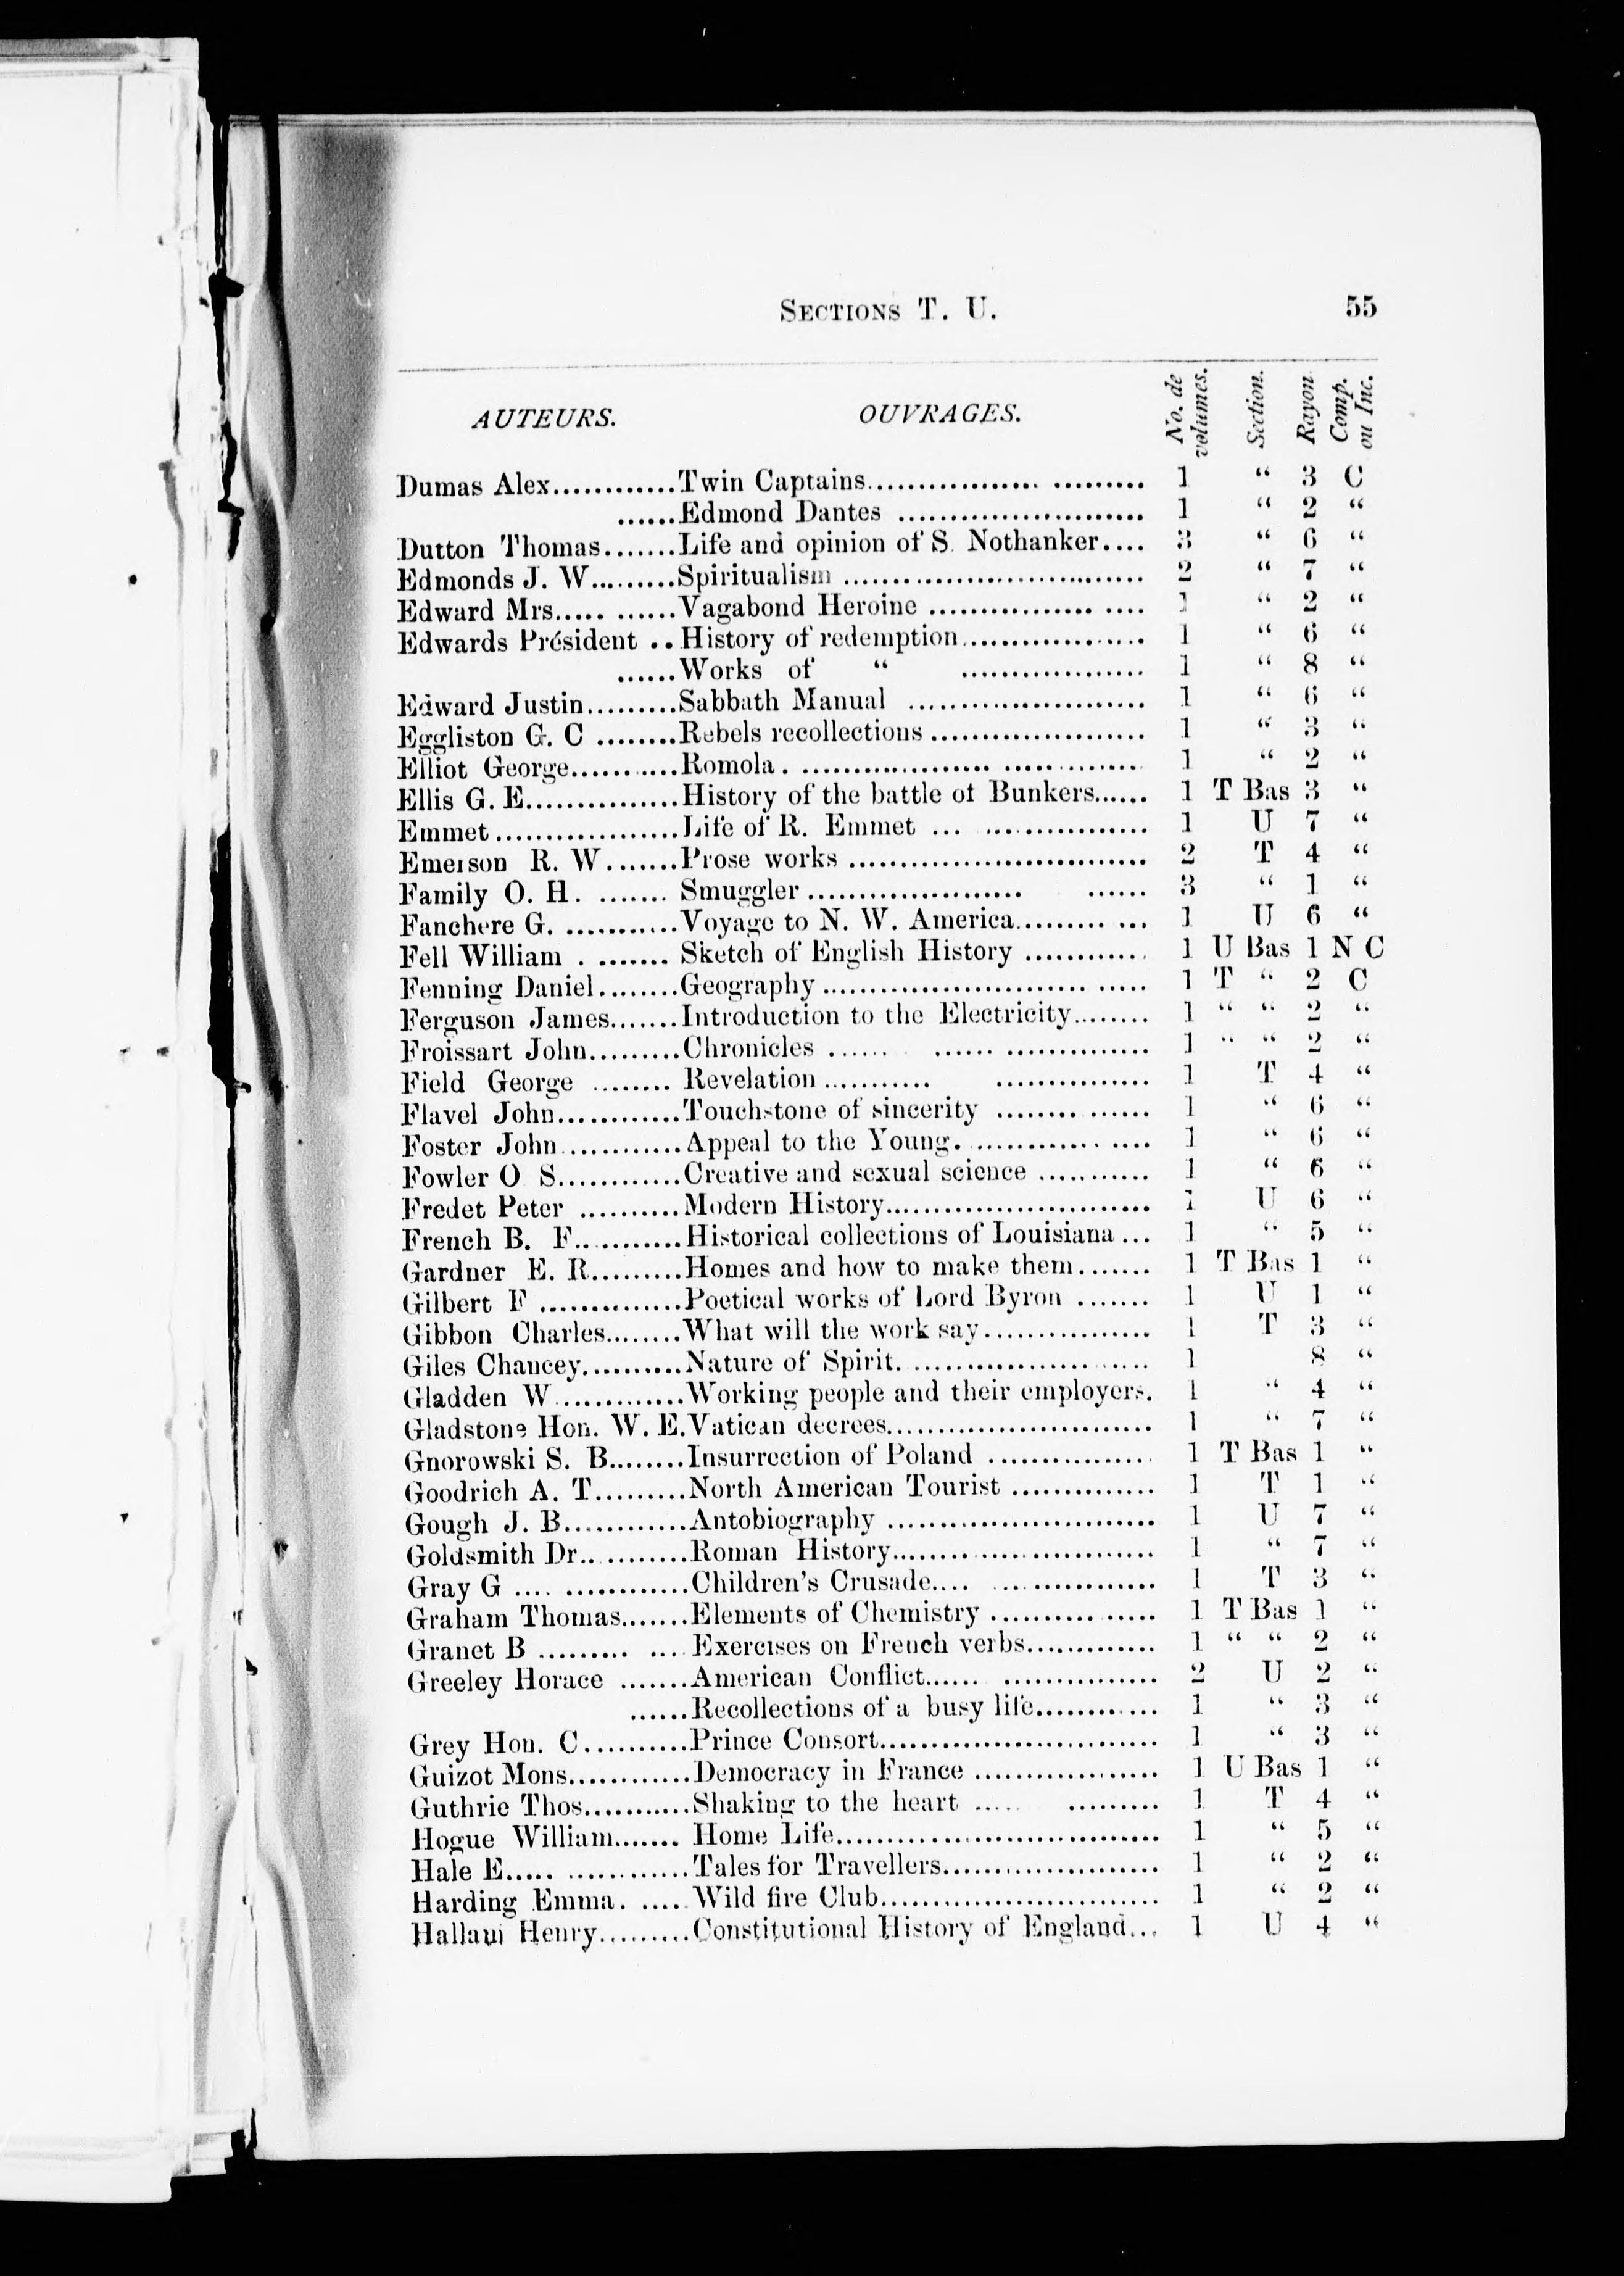 SECTIONS T. U. 55
AUTEURS. OUVRAGES. No. de volumes. Section. Rayon Comp. ou Inc.
Dumas Alex.............Twin Captains.......................... 1 “ 3 C
......Edmond Dantes ........................ 1 “ 2 “
Dutton Thomas.......Life and opinion of S. Nothanker.... 3 “ 6 “
Edmonds J. W.........Spiritualism ............................. 2 “ 7 “
Edward Mrs..... ......Vagabond Heroine ................ .... 1 “ 2 “
Edwards Président ..History of redemption.................. 1 “ 6 “
......Works of “ .................. 1 “ 8 “
Edward Justin.........Sabbath Manual ....................... 1 “ 6 “
Eggliston G. C ........Rebels recollections ..................... 1 “ 3 “
Elliot George...........Romola. .................. ............. 1 “ 2 “
Ellis G. E...............History of the battle of Bunkers...... 1 T Bas 3 “
Emmet..................Life of R. Emmet ... .................. 1 U 7 “
Emerson R. W.......Prose works ............................. 2 T 4 “
Family O. H. ....... Smuggler ..................... ...... 3 “ 1 “
Fanchere G. ...........Voyage to N. W. America......... ... 1 U 6 “
Fell William . ....... Sketch of English History ............ 1 U Bas 1 N C
Fenning Daniel........Geography .......................... ..... 1 T “ 2 C
Ferguson James.......Introduction to the Electricity........ 1 “ “ 2 “
Froissart John.........Chronicles ...... ...... .............. 1 “ “ 2 “
Field George ........ Revelation ........... ............... 1 T 4 “
Flavel John............Touchstone of sincerity ............... 1 “ 6 “
Foster John............Appeal to the Young. ............. .... 1 “ 6 “
Fowler O S............Creative and sexual science ........... 1 “ 6 “
Fredet Peter ..........Modern History.......................... 1 U 6 “
French B. F...........Historical collections of Louisiana ... 1 “ 5 “
Gardner E. R.........Homes and how to make them....... 1 T Bas 1 “
Gilbert F ..............Poetical works of Lord Byron ....... 1 U 1 “
Gibbon Charles........What will the work say................. 1 T 3 “
Giles Chancey..........Nature of Spirit. ........................ 1 8 “
Gladden W.............Working people and their employers. 1 “ 4 “
Gladstone Hon. W. E.Vatican decrees.......................... 1 “ 7 “
Gnorowski S. B........Insurrection of Poland ................ 1 T Bas 1 “
Goodrich A. T.........North American Tourist .............. 1 T 1 “
Gough J. B............Antobiography .......................... 1 U 7 “
Goldsmith Dr...........Roman History.......................... 1 “ 7 “
Gray G .... ............Children’s Crusade.... ................ 1 T 3 “
Graham Thomas.......Elements of Chemistry ................ 1 T Bas 1 “
Granet B ......... .... Exercises on French verbs............. 1 “ “ 2 “
Greeley Horace .......American Conflict...... ............... 2 U 2 “
......Recollections of a busy life............ 1 “ 3 “
Grey Hon. C...........Prince Consort........................... 1 “ 3 “
Guizot Mons............Democracy in France .................. 1 U Bas 1 “
Guthrie Thos...........Shaking to the heart ..... ......... 1 T 4 “
Hogue William....... Home Life............................... 1 “ 5 “
Hale E..... ............Tales for Travellers..................... 1 “ 2 “
Harding Emma. .....Wild fire Club........................... 1 “ 2 “
Hallam Henry.........Constitutional History of England... 1 U 4 “